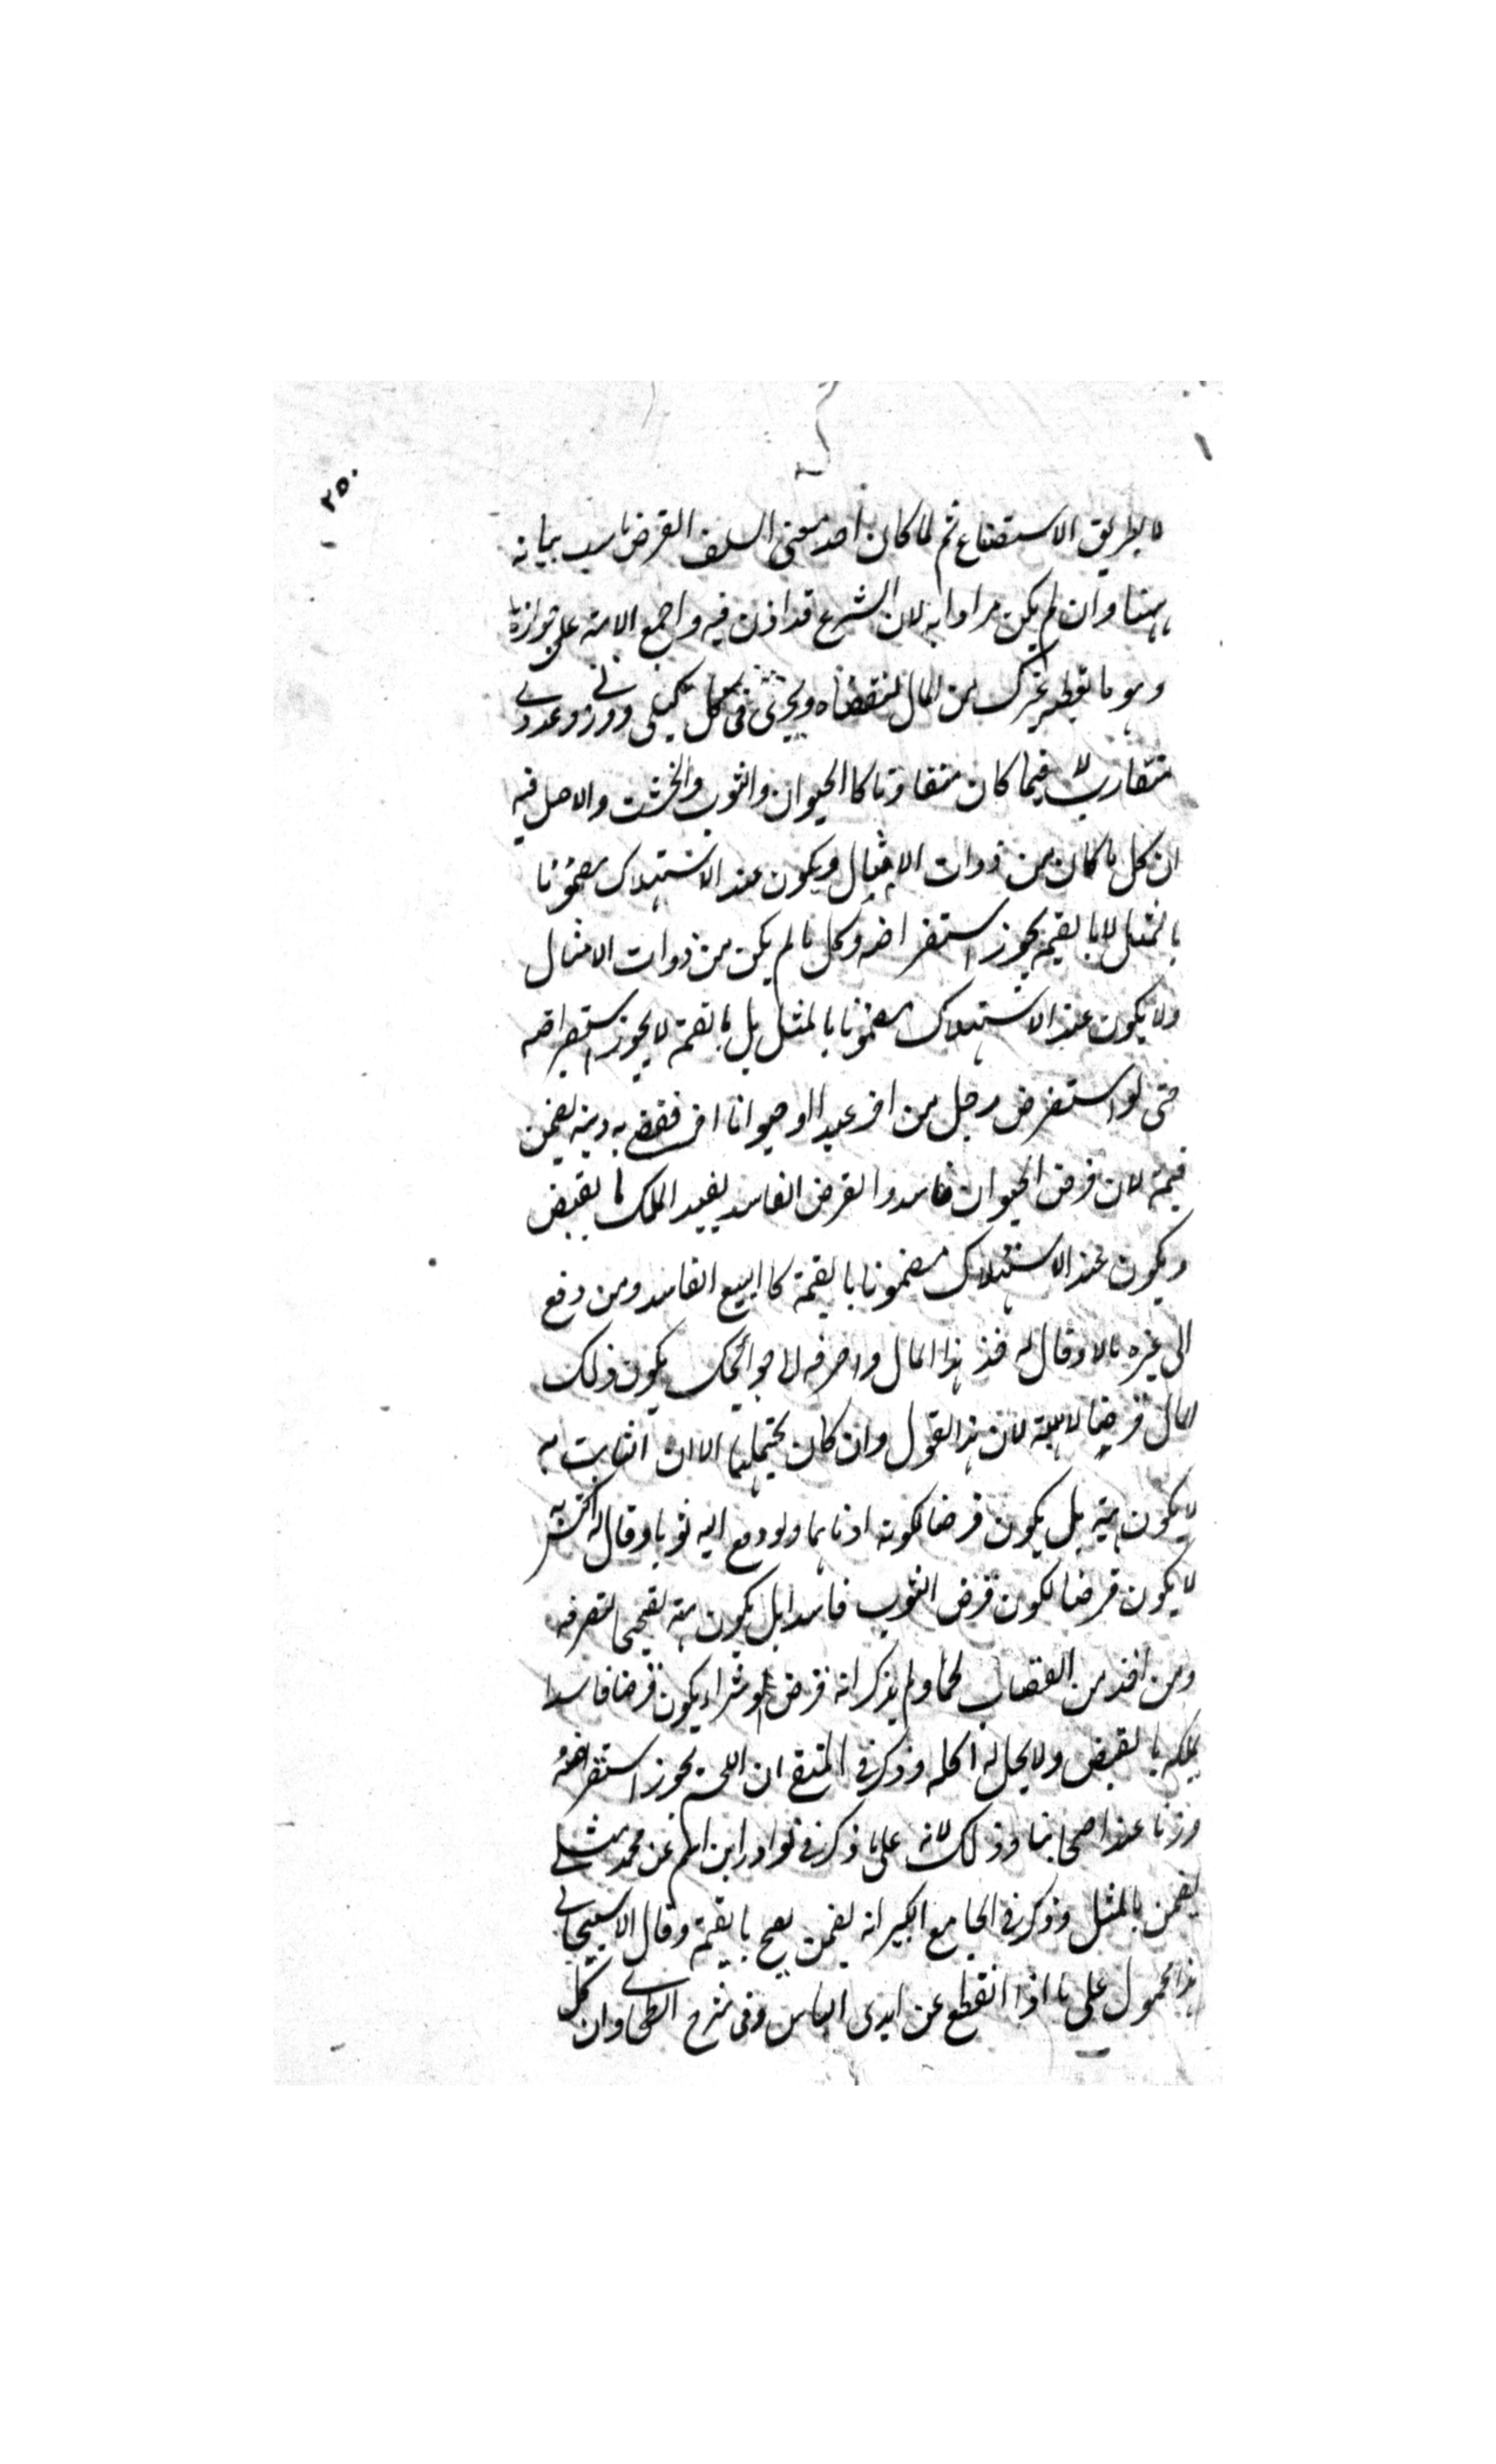 ٢٥٠
لا بطريق الاستصناع ثم لما كان احد معنى السلف القرض ناسب بيانه
ههنا وان لم يكن مرادا به لان الشرع قد اذن فيه واجمع الامة على جوازه
وهو ما تعطيه غيرك من المال لتقضاه ويجرى فى كل كيلى ووزنى وعددى
متقارب لا فيما كان متفاوتا كالحيوان والثوب والخشب والاصل فيه
ان كل ما كان من ذوات الامثال ويكون عند الاستهلاك مضمونا
بالمثل لا بالقيمة يجوز استقراضه وكل ما لم يكن من ذوات الامثال
ولا يكون عند الاستهلاك مضمونا بالمثل بل بالقيمة لا يجوز استقراضه
حتى لو استقرض رجل من اخر عبدا او حيوانا اخر فقضى به دينه يضمن
قيمته لان قرض الحيوان فاسد والقرض الفاسد يفيد الملك بالقبض
ويكون عند الاستهلاك مضمونا بالقيمة كالبيع الفاسد ومن دفع
الى غيره مالا وقال له خذ هذا المال واصرفه الى حوائجك يكون ذلك
المال قرضا لا هبة لان هذا القول وان كان يحتملهما الا ان الثابت به
لا يكون هبة بل يكون قرضا لكونه ادناهما ولو دفع اليه ثوبا وقال له اكتس به
لا يكون قرضا لكون قرض الثوب فاسدا بل يكون هبة تصحيحا لتصرفه
ومن اخذ من القصاب لحما ولم يذكر انه قرض او شراء يكون قرضا فاسدا
يملكه بالقبض ولا يحل له اكله وذكر فى المنتقى ان اللحم يجوز استقراضه
وزنا عند اصحابنا وذلك لانه على ما ذكر فى نوادر ابن عن محمد مثلى
يضمن بالمثل وذكر فى الجامع الكبير انه يضمن بالقيمة وقال الاسبيجابى
هذا محمول على ما اذا انقطع عن ايدى الناس وفى شرح الطحاوى ان كل